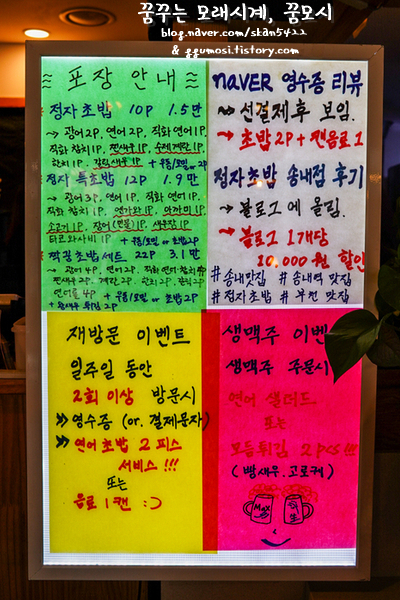 꿈꾸는 모래시계, 꿈모시
blog.naver.com/skan5422
& ggumosi.tistory.com
포장 안내
정자초밥 10P 1.5만
광어2P, 연어2P, 직화 연어1P,
직화 참치 1P, 찐새우 2P, 수제계란 1P,
한치 1P, 간장새우 1P + 우동/모밀 or 초밥2P
정자 특초밥 12P 1.9만
광어 3P, 연어 1P, 직화 연어 1P,
직화 참치 1P, 연가와 1P, 아까미 1P,
소고기 1P, 장어(민물) 1P, 생새우 1P,
타코와사비 1P + 우동/모밀 or 초밥2P
짝꿍초밥세트 22P 3.1만
광어 4P, 연어 2P, 직화 연어·참치 4P
찐새우 2P, 계란 2P, 한치 2P, 간식 2P
연어롤 4P + 우동/모밀 or 초밥 2P
naver 영수증 리뷰
선결제후 보임.
초밥 2P + 캔음료 1
정자초밥 송내점 후기
블로그에 올림.
블로그 1개당
10,000원 할인
#송내맛집 #송내역 맛집
#정자초밥 #부천 맛집
재방문 이벤트
일주일 동안
2회 이상 방문시
영수증 (or. 결제문자)
연어초밥 2피스
서비스 !!!
또는
음료 1캔 :)
생맥주 이벤
생맥주 주문시
연어 샐러드
또는
모듬튀김 2pcs !!!
(빵새우. 고로케)